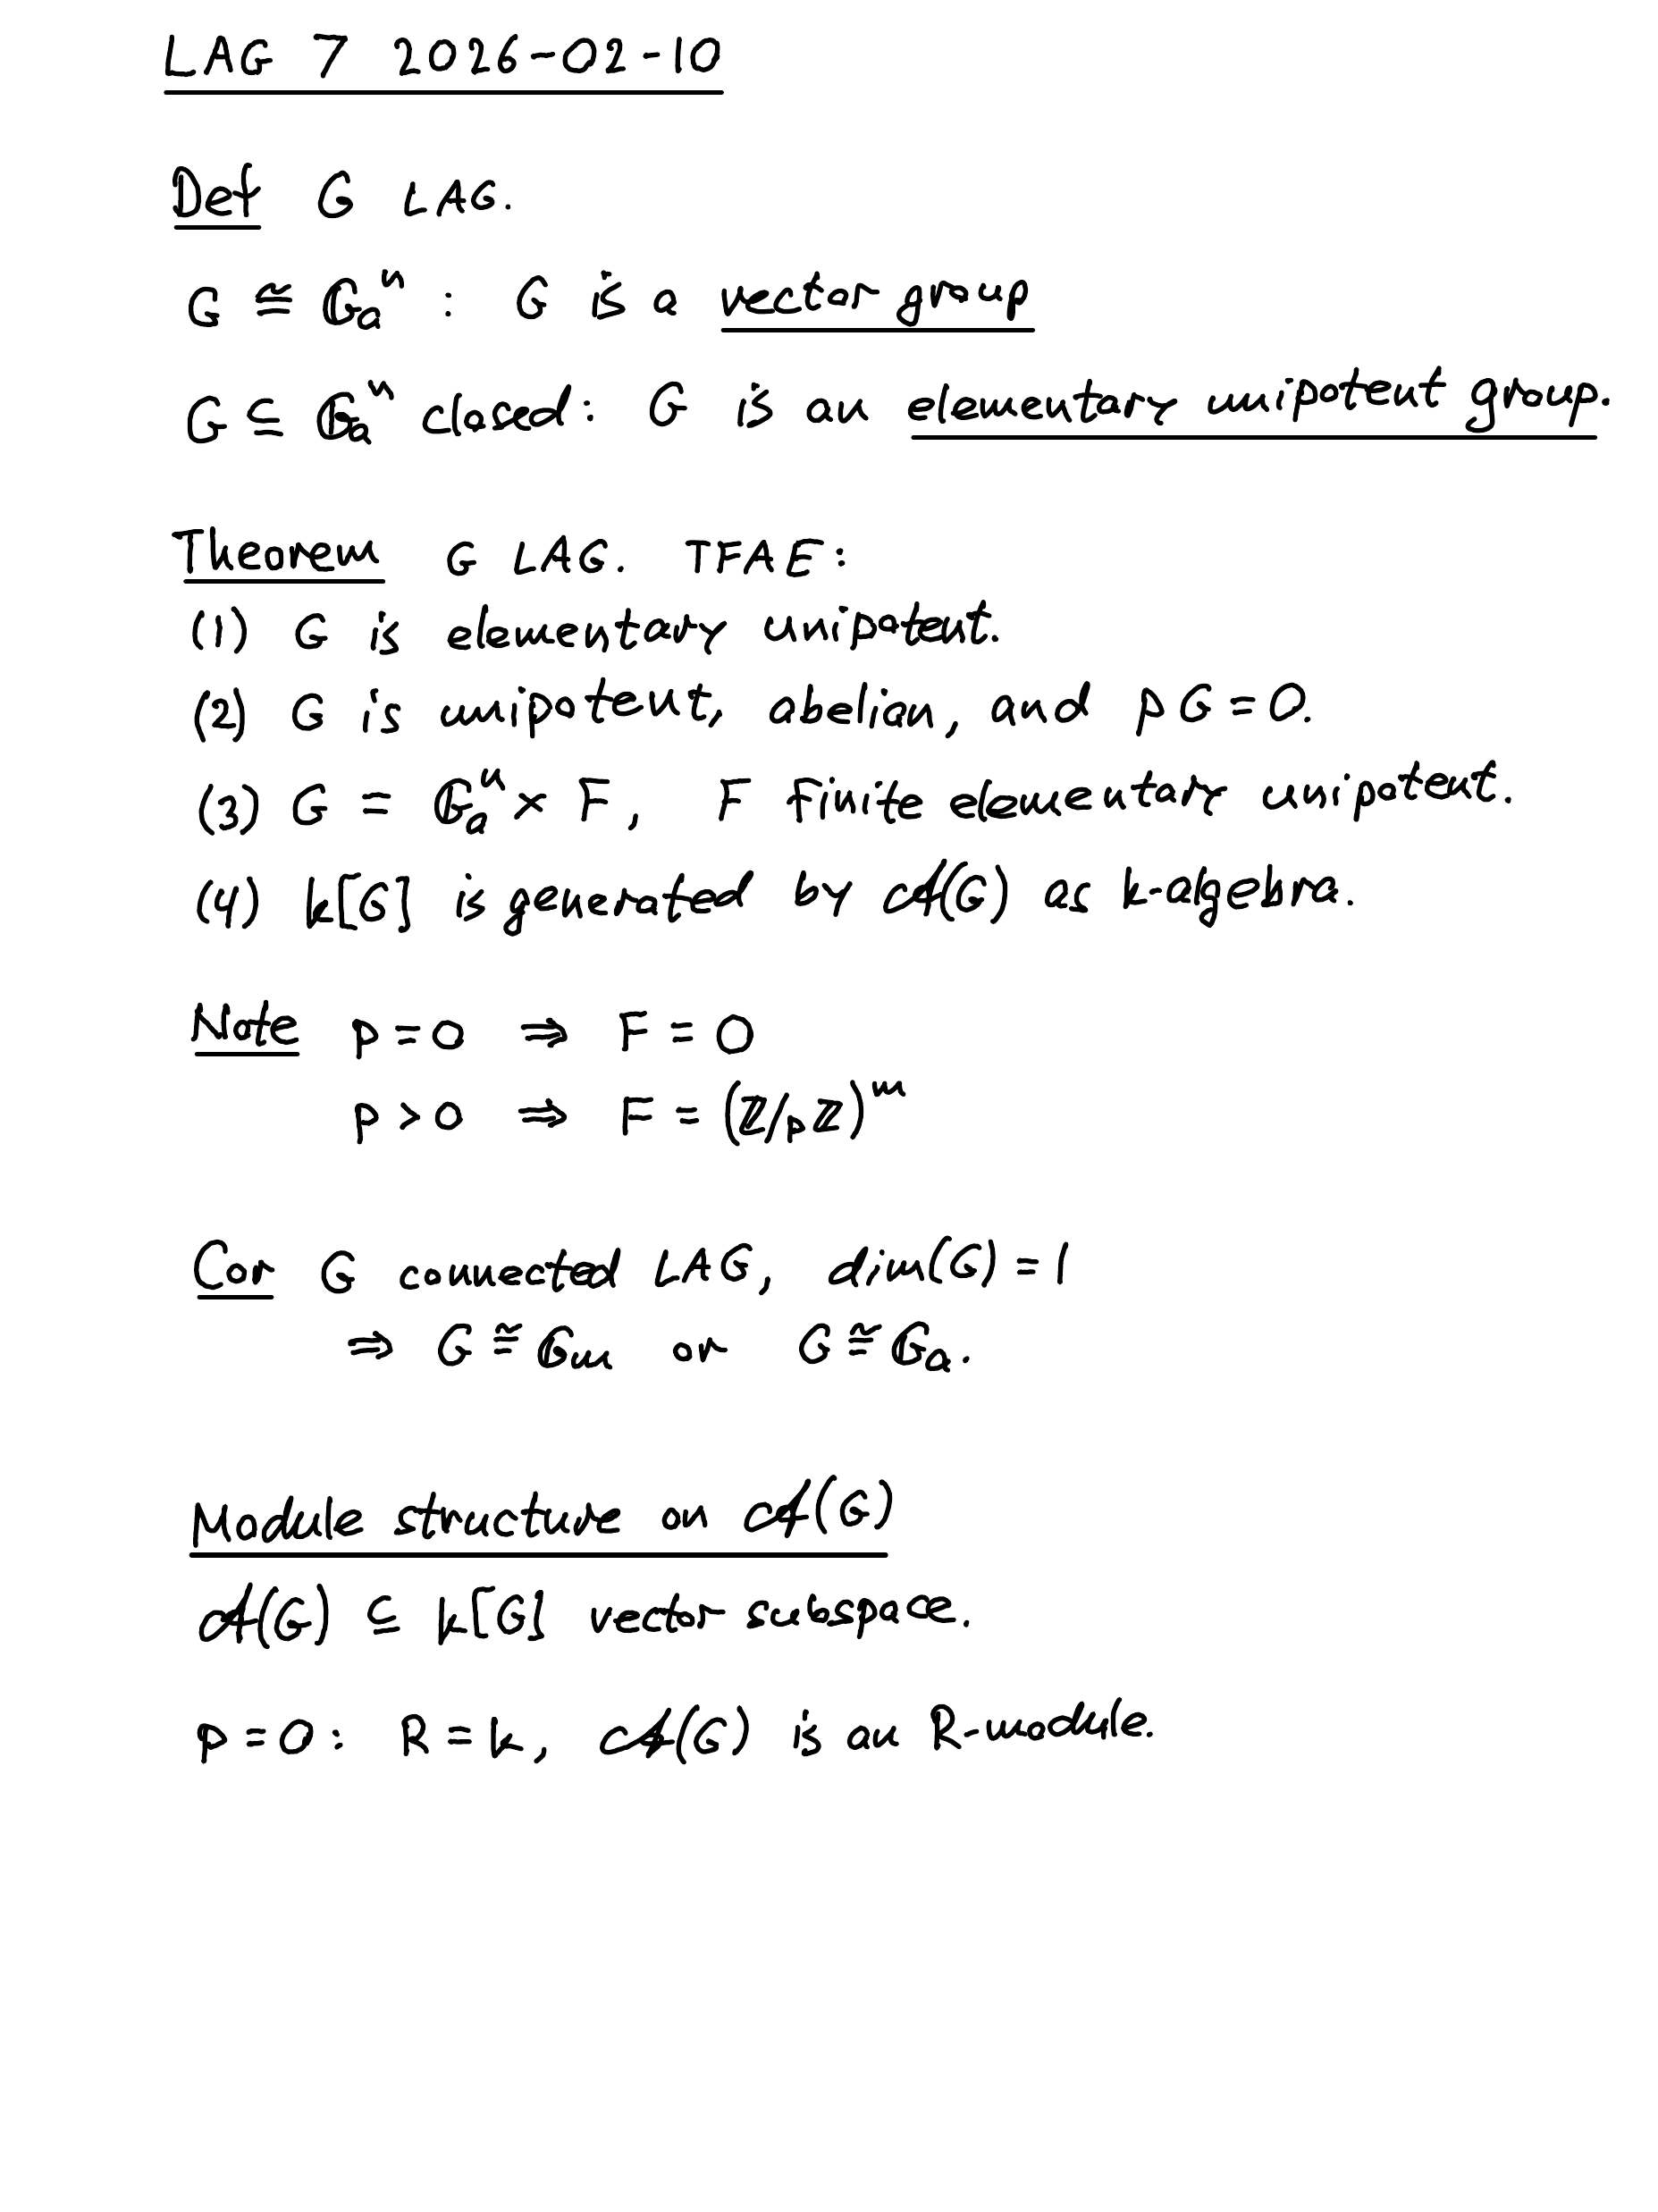 LAG 7 2026-02-10
Def G LAG.
G ≅ 𝔾ₐⁿ : G is a vector group
G ⊆ 𝔾ₐⁿ closed: G is an elementary unipotent group.
Theorem G LAG. TFAE:
(1) G is elementary unipotent.
(2) G is unipotent, abelian, and pG = 0.
(3) G = 𝔾ₐⁿ × F, F finite elementary unipotent.
(4) k[G] is generated by 𝒜(G) as k-algebra.
Note p = 0 ⇒ F = 0
p > 0 ⇒ F = (ℤ/pℤ)ᵐ
Cor G connected LAG, dim(G) = 1
⇒ G ≅ 𝔾ₘ or G ≅ 𝔾ₐ.
Module structure on 𝒜(G)
𝒜(G) ⊆ k[G] vector subspace.
p = 0: R = k, 𝒜(G) is an R-module.